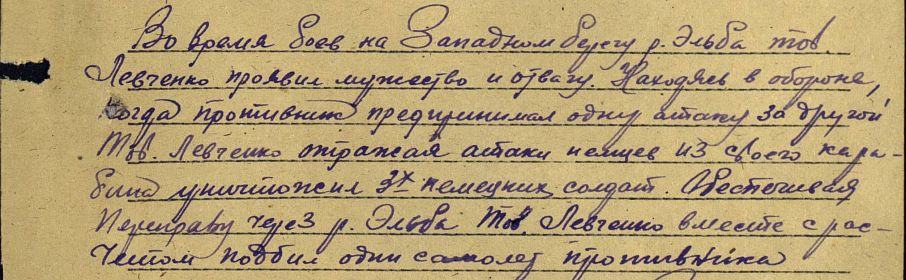 Во время боев на Западном берегу р. Эльба тов.
Левченко проявил мужество и отвагу. Находясь в обороне,
когда противник предпринимал одну атаку за другой
Тов. Левченко отражая атаки немцев из своего кара-
бина уничтожил 3х немецких солдат. Обеспечивая
Переправу через р. Эльба Тов Левченко вместе с рас-
четом подбил один самолет противника